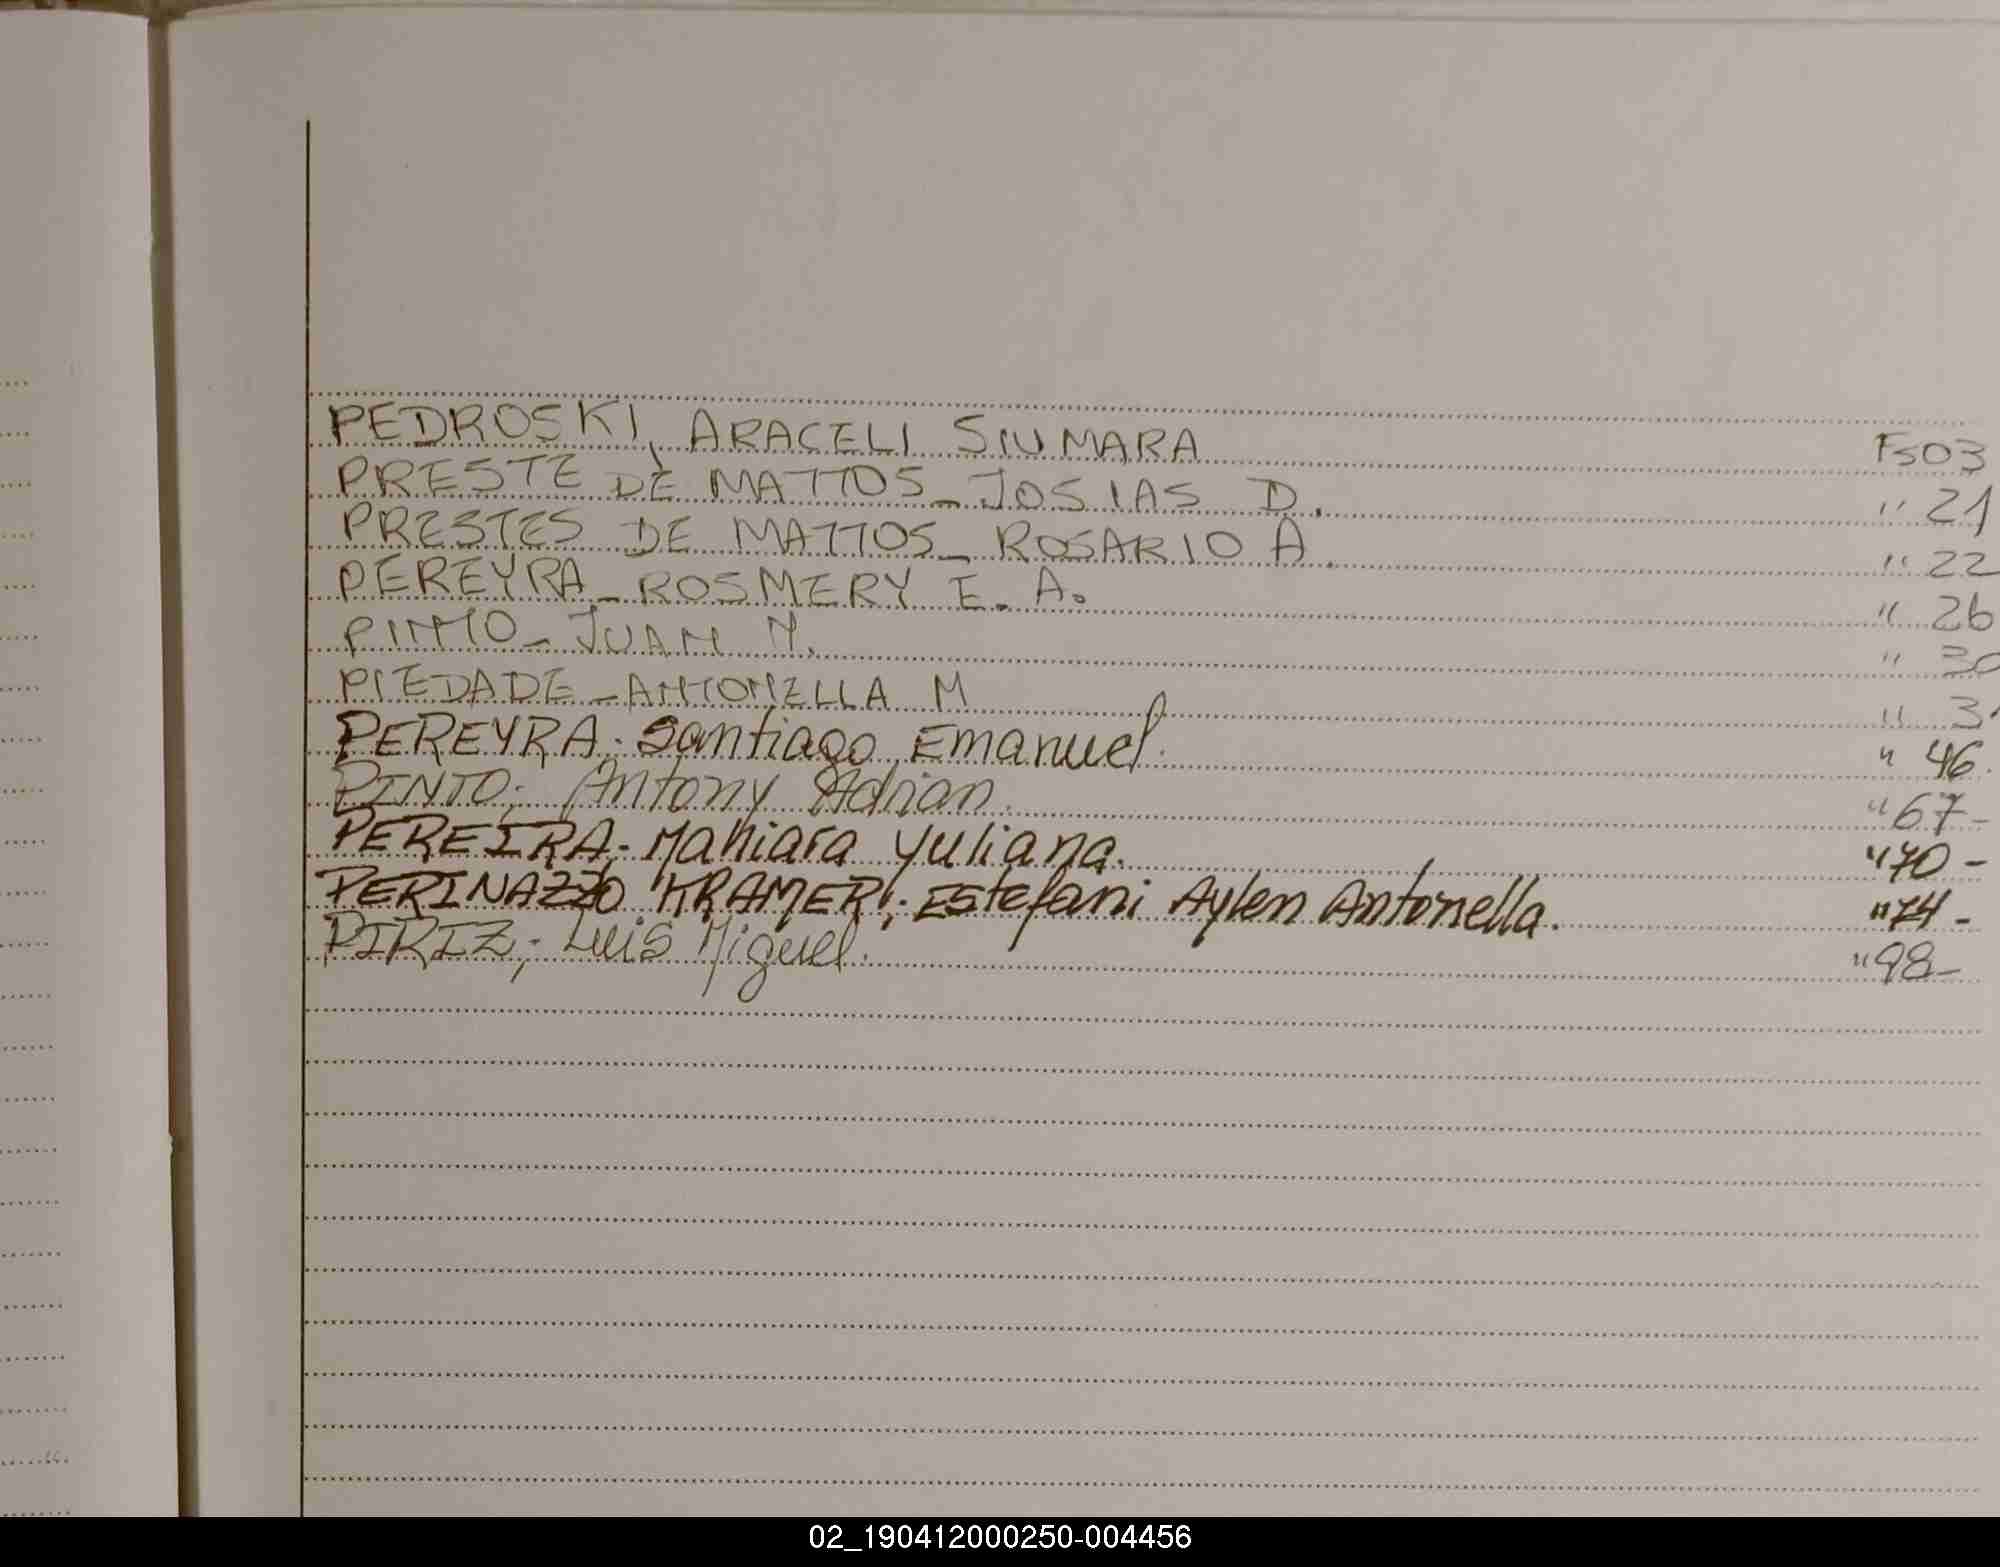 PEDROSKI, ARACELI SIUMARA Fs03
PRESTE DE MATTOS_JOSIAS D. " 21
PRESTES DE MATTOS_ROSARIO A. " 22
PEREYRA_ROSMERY E. A. " 26
PINTO_JUAN N. " 30
PIEDADE_ANTONELLA M " 31
PEREYRA; Santiago Emanuel. " 46.
PINTO; Antony Adrian. " 67-
PEREIRA; Mahiara Yuliana. " 70-
PERINAZZO KRAMER; Estefani Aylen Antonella. " 74-
PIRIZ; Luis Miguel. " 98-
02_190412000250-004456